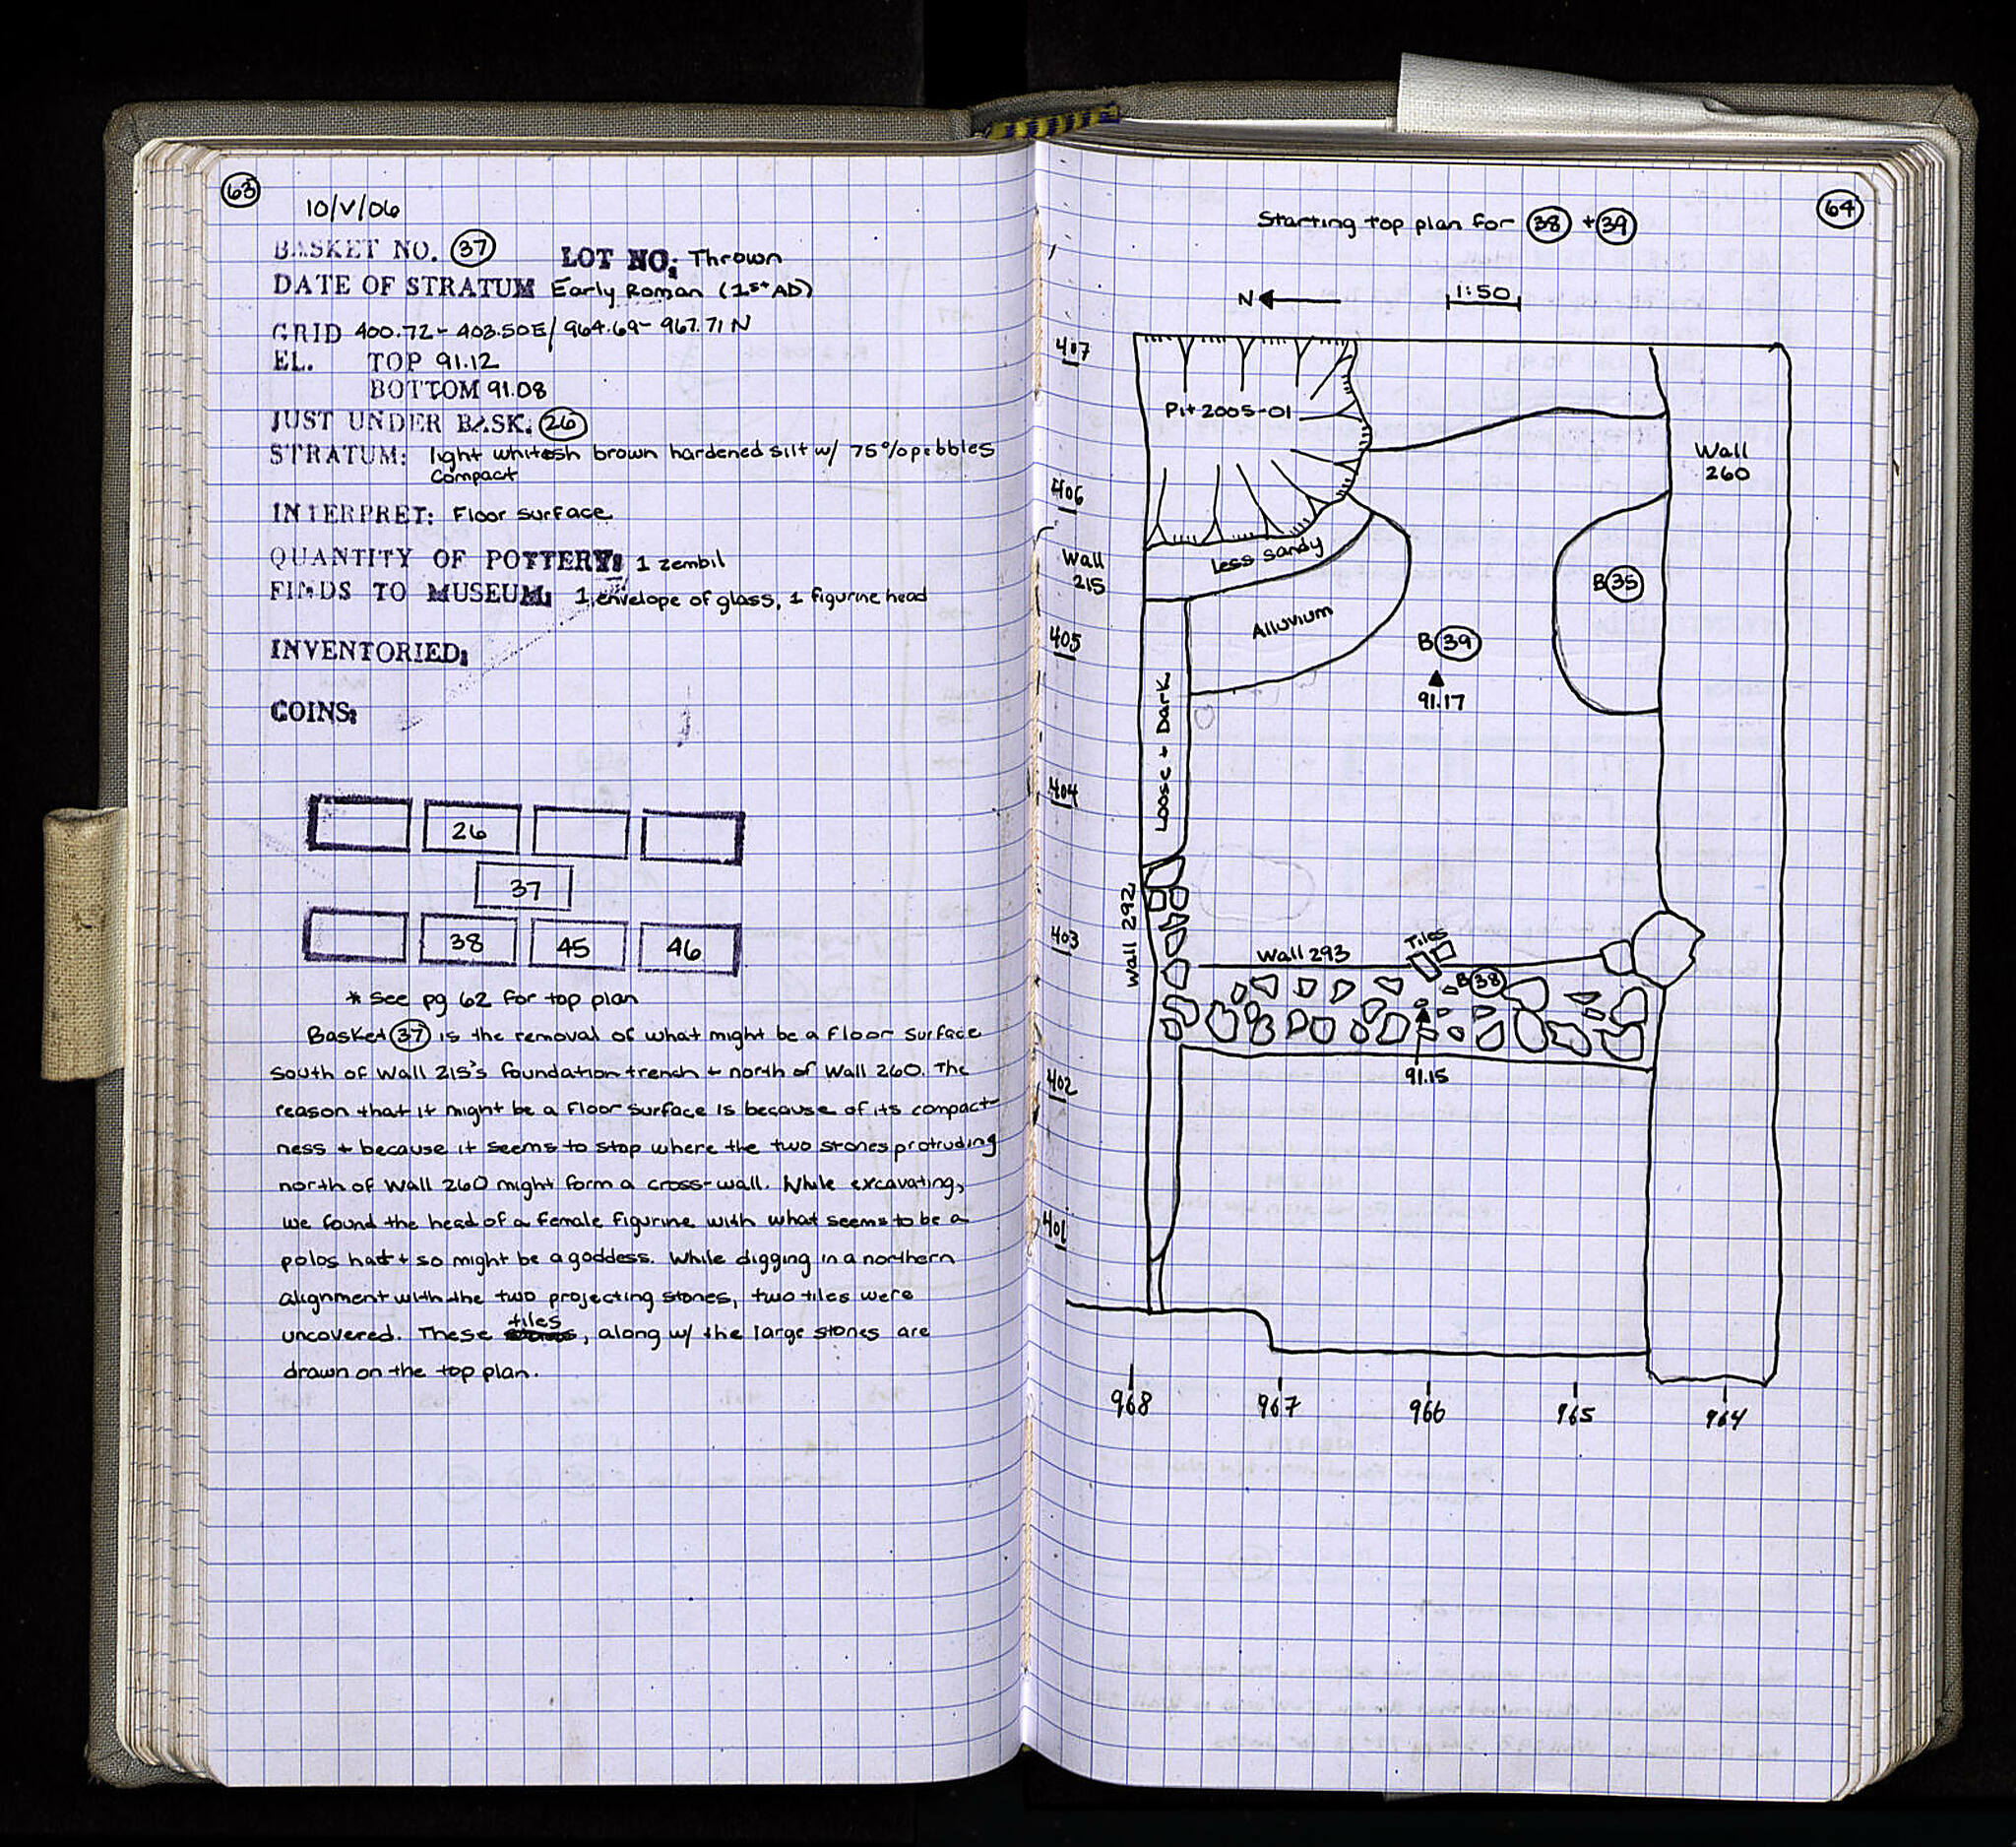 63
10/V/06
BASKET NO. 37 LOT NO: Thrown
DATE OF STRATUM Early Roman (1st AD)
GRID 400.72 - 403.50E / 964.69 - 967.71 N
EL. TOP 91.12
BOTTOM 91.08
JUST UNDER BASK. 26
STRATUM: light whitesh brown hardened silt w/ 75% pebbles
Compact
INTERPRET: Floor surface
QUANTITY OF POTTERY: 1 zembil
FINDS TO MUSEUM: 1 envelope of glass, 1 figurine head
INVENTORIED:
COINS:
26
37
38 45 46
* See pg 62 for top plan
Basket 37 is the removal of what might be a floor surface
south of Wall 215's foundation trench + north of Wall 260. The
reason that it might be a floor surface is because of its compact-
ness + because it seems to stop where the two stones protruding
north of Wall 260 might form a cross-wall. While excavating,
we found the head of a female figurine with what seems to be a
polos hat + so might be a goddess. While digging in a northern
alignment with the two projecting stones, two tiles were
tiles
uncovered. These , along w/ the large stones are
drawn on the top plan.
64
Starting top plan for 38 + 39
N 1:50
407
Pit 2005-01
Wall
260
406
Less sandy
Wall
215
B 35
Alluvium
405
B 39
91.17
Loose + Dark
404
Wall 292
403
Wall 293
Tiles
B 38
91.15
402
401
968 967 966 965 964